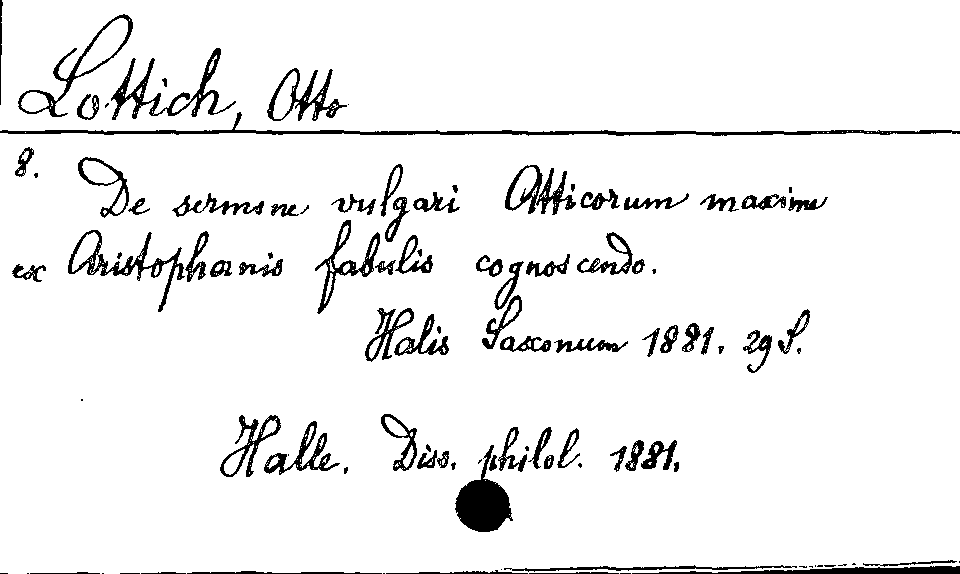 Lottich, Otto
8. De sermone vulgari Atticorum maxime
ex Aristophanis fabulis cognoscendo.
Halis Saxonum 1881. 29 S.
Halle. Diss. philol. 1881.